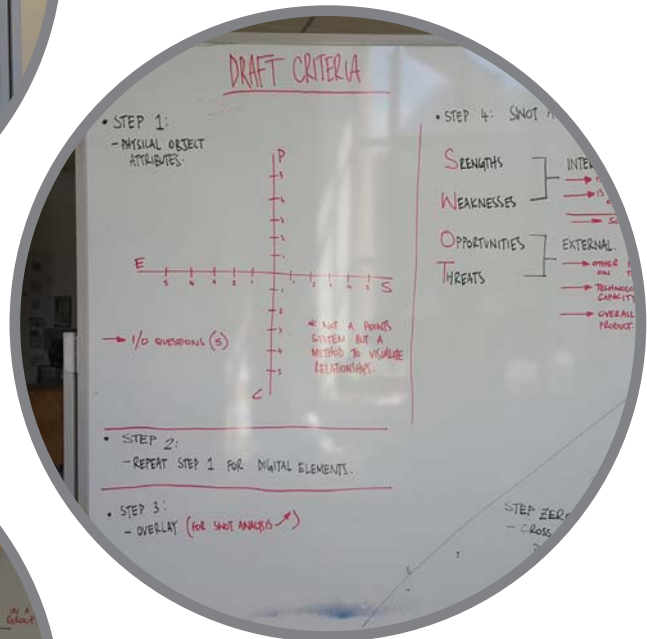 DRAFT CRITERIA
• STEP 1:
- PHYSICAL OBJECT
ATTRIBUTES.
P
5
4
3
2
1
E
5 4 3 2 1 1 2 3 4 5 S
1
2
3
4
5
C
→ I/O QUESTIONS (5)
* NOT A POINTS
SYSTEM BUT A
METHOD TO VISUALISE
RELATIONSHIPS.
• STEP 2:
- REPEAT STEP 1 FOR DIGITAL ELEMENTS.
• STEP 3:
- OVERLAY (FOR SWOT ANALYSIS ↗)
• STEP 4: SWOT A
STRENGTHS
WEAKNESSES
OPPORTUNITIES
THREATS
INTER
→ IS
EXTERNAL.
→ OTHER
ON T
→ TECHNOLO
CAPACITY
→ OVERALL
PRODUCT
STEP ZERO
- CROSS
IN A